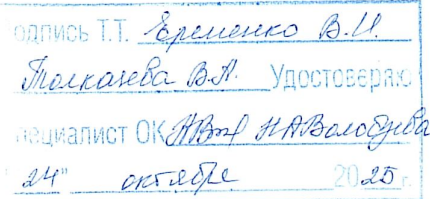 одпись Т.Т. Еременко В.И.
Толкачева В.А. Удостоверяю
пециалист ОК Н.А.Волобуева
"24" октября 2025 г.